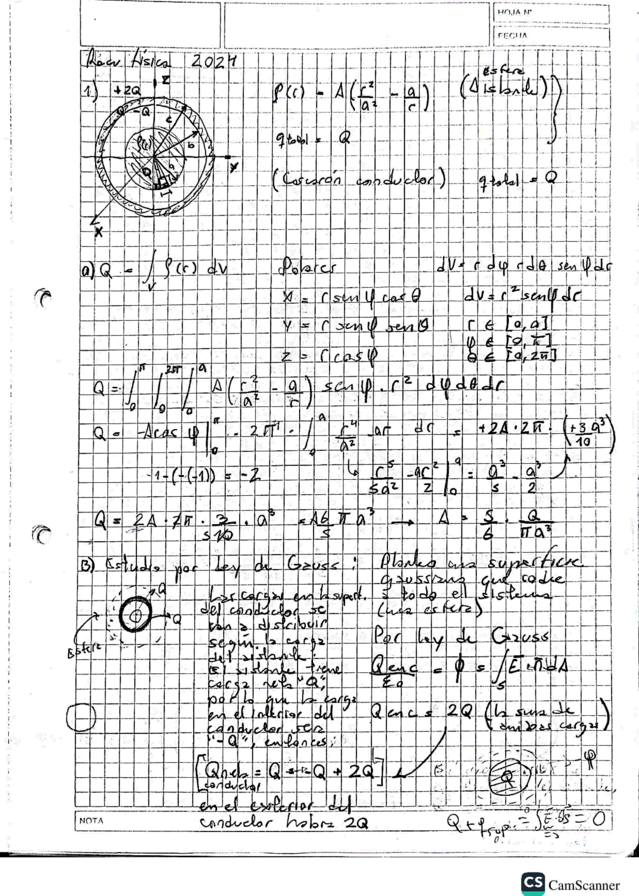 HOJA N°
FECHA
Física 2024
1) +2Q
-Q
z
c
b
y
x
ρ(r) = A(r²/a² - a/r) (esfera Aislante)
q total = Q
(Cascarón conductor) q total = Q
a) Q = ∫_V ρ(r) dV Polares dV = r dφ r dθ sen φ dr
x = r sen φ cos θ dV = r² sen φ dr
y = r sen φ sen θ r ∈ [0, a]
z = r cos φ φ ∈ [0, π]
θ ∈ [0, 2π]
Q = ∫_0^π ∫_0^2π ∫_0^a A(r²/a² - a/r) sen φ · r² dφ dθ dr
Q = -A cos φ |_0^π · 2π · ∫_0^a r⁴/a² - ar dr = +2A · 2π · (+3a³/10)
-1-(-(-1)) = -2 r⁵/5a² - ar²/2 |_0^a = a³/5 - a³/2
Q = 2A · 2π · 3/10 · a³ = A 6/5 π a³ → A = 5/6 · Q/πa³
B) Estudio por Ley de Gauss: Planteo una superficie
gaussiana que rodie
a todo el sistema
(una esfera)
Esfera
Q
Q
Las cargas en la superf.
del conductor se
van a distribuir
según la carga
del aislante:
El aislante tiene
carga neta "Q",
por lo que la carga
en el interior del
conductor será
"-Q", entonces:
Por Ley de Gauss
Q enc/ε₀ = φ = ∫_S E · n dA
Q enc = 2Q (la suma de
ambas cargas)
[Q neta = Q = -Q + 2Q]
conductor
en el exterior del
conductor habra 2Q
Q
φ
= ∫ E · ds = 0
NOTA
CS CamScanner